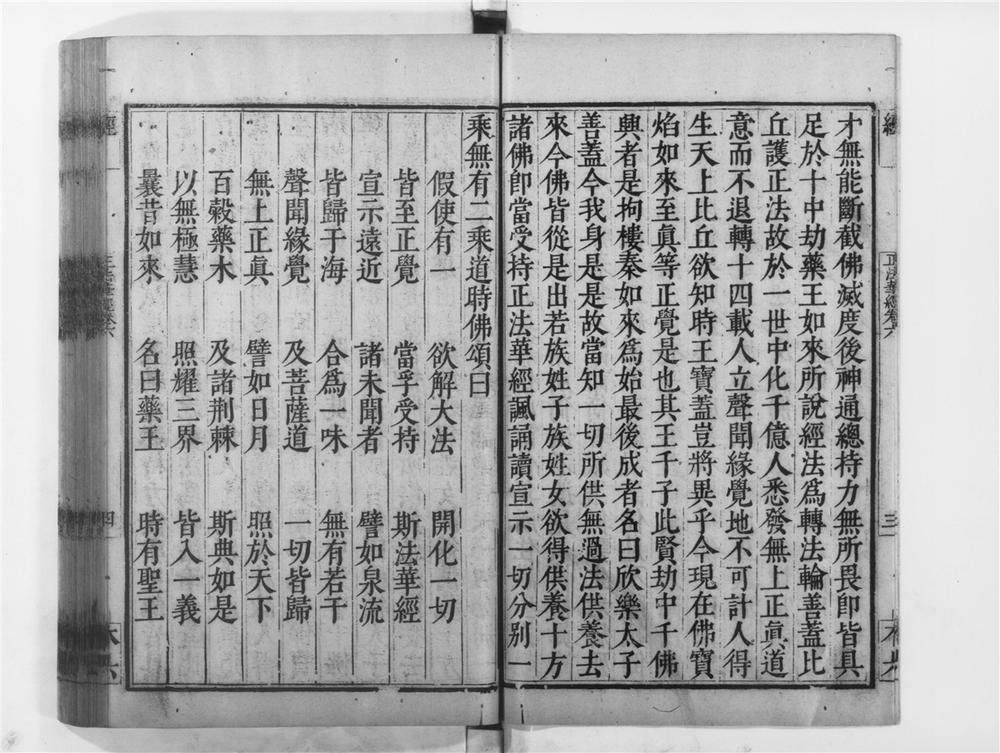 才無能斷截佛滅度後神通總持力無所畏即皆具
足於十中劫藥王如來所說經法爲轉法輪善蓋比
丘護正法故於一世中化千億人悉發無上正眞道
意而不退轉十四載人立聲聞緣覺地不可計人得
生天上比丘欲知時王寶蓋豈將異乎今現在佛寶
焰如來至眞等正覺是也其王千子此賢劫中千佛
興者是拘樓秦如來爲始最後成者名曰欣樂太子
善蓋今我身是是故當知一切所供無過法供養去
來今佛皆從是出若族姓子族姓女欲得供養十方
諸佛即當受持正法華經諷誦讀宣示一切分別一
乘無有二乘道時佛頌曰
假使有一 欲解大法 開化一切
皆至正覺 當孚受持 斯法華經
宣示遠近 諸未聞者 譬如泉流
皆歸于海 合爲一味 無有若干
聲聞緣覺 及菩薩道 一切皆歸
無上正眞 譬如日月 照於天下
百穀藥木 及諸荆棘 斯典如是
以無極慧 照耀三界 皆入一義
曩昔如來 名曰藥王 時有聖王
經
正法華經卷六
三
經
正法華經卷六
四